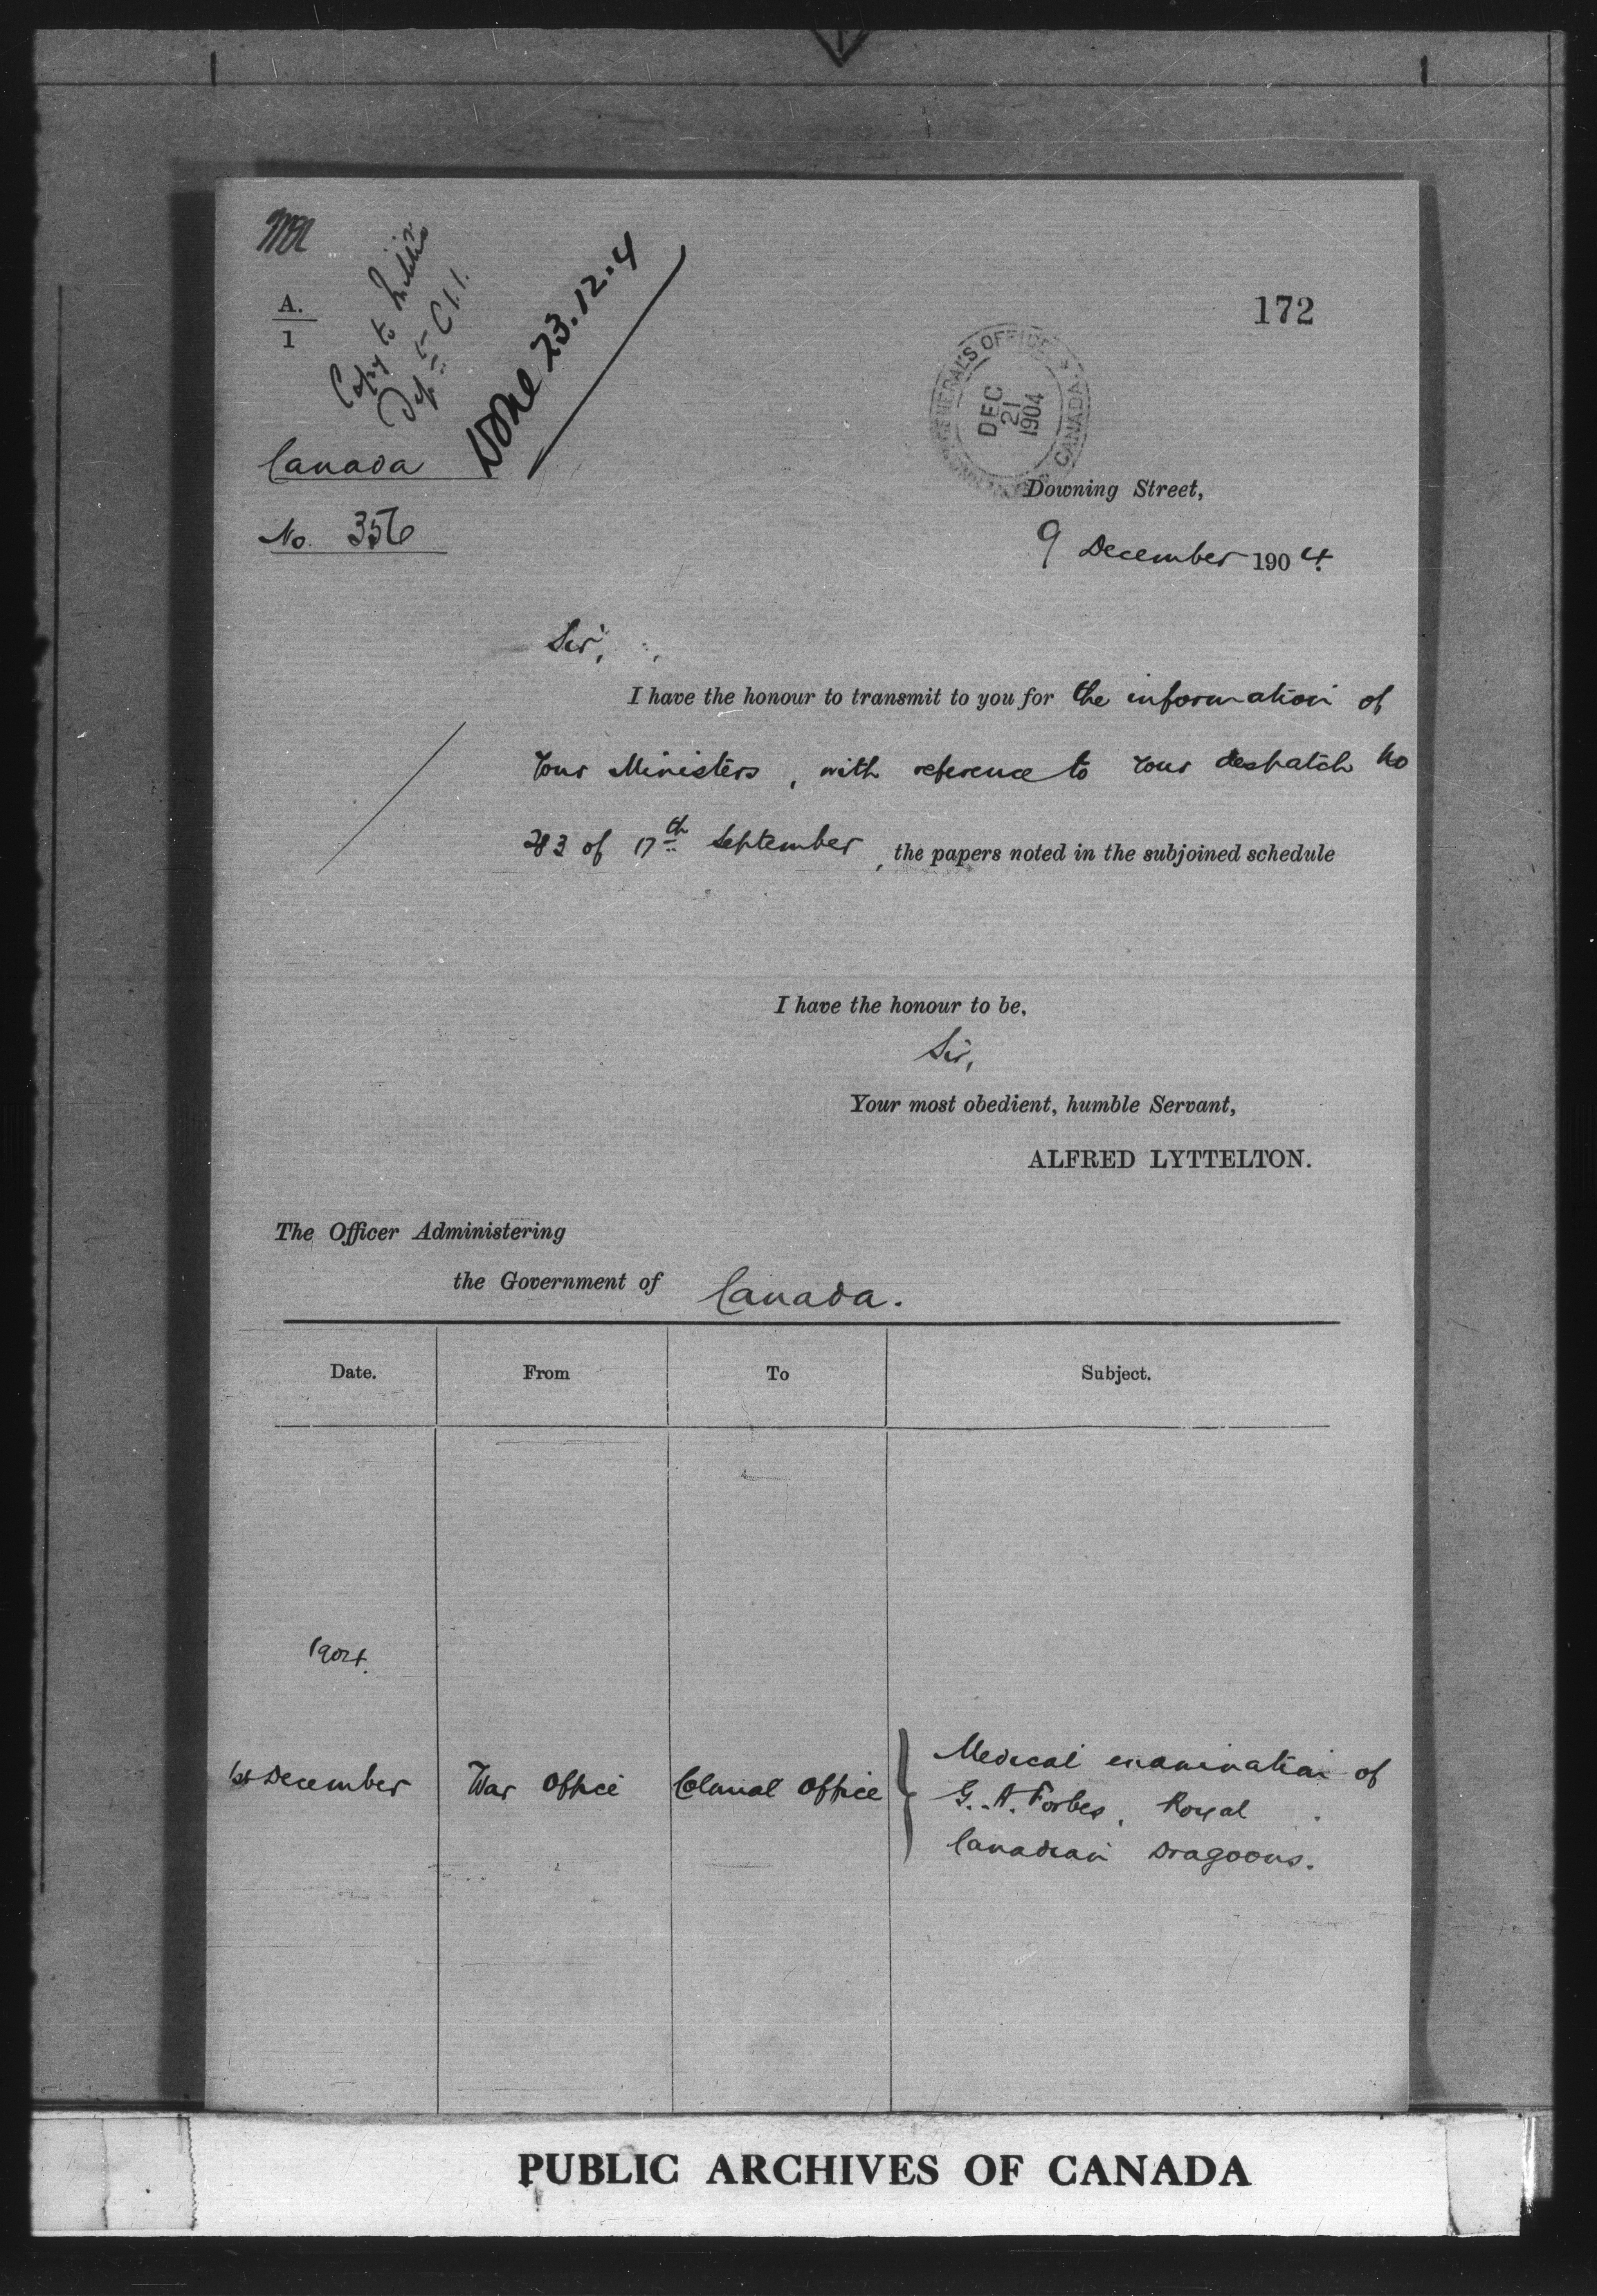 A.
1
Copy to Militia
Dept
Done 23.12.4
172
GENERAL'S OFFICE
CANADA
DEC
21
1904
Canada
No. 356
Downing Street,
9 December 1904.
Sir,
I have the honour to transmit to you for the information of
Your Ministers, with reference to Your despatch No
283 of 17th September, the papers noted in the subjoined schedule
I have the honour to be,
Sir,
Your most obedient, humble Servant,
ALFRED LYTTELTON.
The Officer Administering
the Government of Canada.
Date. From To Subject.
1904.
1st December War Office Colonial Office Medical examination of
G. A. Forbes, Royal
Canadian Dragoons.
PUBLIC ARCHIVES OF CANADA